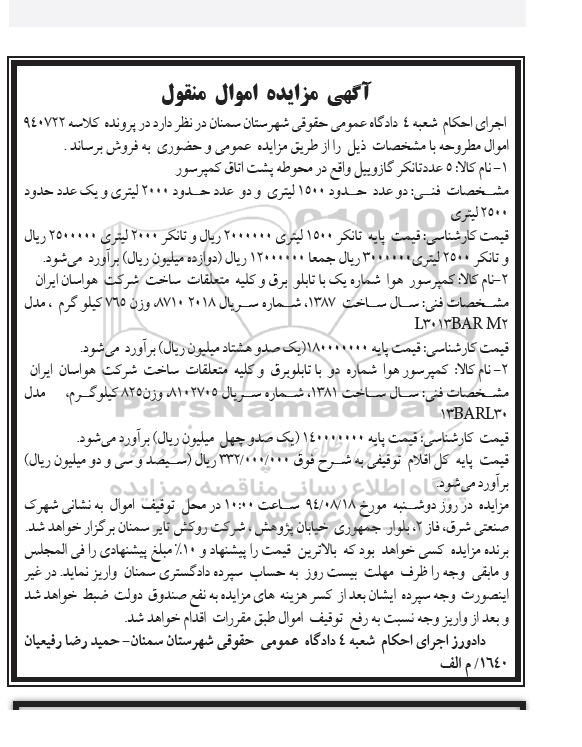 آگهی مزایده اموال منقول
اجرای احکام شعبه ٤ دادگاه عمومی حقوقی شهرستان سمنان در نظر دارد در پرونده کلاسه ٩٤٠٧٢٢
اموال مطروحه با مشخصات ذیل را از طریق مزایده عمومی و حضوری به فروش برساند .
١- نام کالا: ٥ عددتانکر گازوییل واقع در محوطه پشت اتاق کمپرسور
مشـخصات فنـی: دو عدد حـدود ١٥٠٠ لیتری و دو عدد حـدود ٢٠٠٠ لیتری و یک عدد حدود
٢٥٠٠ لیتری
قیمت کارشناسی: قیمت پایه تانکر ١٥٠٠ لیتری ٢٠٠٠٠٠٠ ریال و تانکر ٢٠٠٠ لیتری ٢٥٠٠٠٠٠ ریال
و تانکر ٢٥٠٠ لیتری٣٠٠٠٠٠٠ ریال جمعا ١٢٠٠٠٠٠٠ ریال (دوازده میلیون ریال) برآورد می‌شود.
٢-نام کالا: کمپرسور هوا شماره یک با تابلو برق و کلیه متعلقات ساخت شرکت هواسان ایران
مشـخصات فنی: سـال سـاخت ١٣٨٧، شـماره سـریال ٢٠١٨ ٨٧١٠، وزن ٧٦٥ کیلو گرم ، مدل
L٣٠١٣BAR M٢
قیمت کارشناسی: قیمت پایه ١٨٠٠٠٠٠٠٠(یک صدو هشتاد میلیون ریال) برآورد می‌شود.
٢- نام کالا: کمپرسور هوا شماره دو با تابلوبرق و کلیه متعلقات ساخت شرکت هواسان ایران
مشـخصات فنی: سـال سـاخت ١٣٨١، شـماره سـریال ٨١٠٢٧٠٥، وزن٨٢٥ کیلوگـرم، مدل
١٣BARL٣٠
قیمت کارشناسی: قیمت پایه ١٤٠٠٠٠٠٠٠ (یک صدو چهل میلیون ریال) برآورد می‌شود.
قیمت پایه کل اقلام توقیفی به شـرح فوق ٣٣٢/٠٠٠/٠٠٠ ریال (سـیصد و سی و دو میلیون ریال)
برآورد می‌شود.
مزایده در روز دوشـنبه مورخ ٩٤/٠٨/١٨ سـاعت ١٠:٠٠ در محل توقیف اموال به نشانی شهرک
صنعتی شرق، فاز ٢، بلوار جمهوری خیابان پژوهش ، شرکت روکش تایر سمنان برگزار خواهد شد.
برنده مزایده کسی خواهد بود که بالاترین قیمت را پیشنهاد و ١٠٪ مبلغ پیشنهادی را فی المجلس
و مابقی وجه را ظرف مهلت بیست روز به حساب سپرده دادگستری سمنان واریز نماید. در غیر
اینصورت وجه سپرده ایشان بعد از کسر هزینه های مزایده به نفع صندوق دولت ضبط خواهد شد
و بعد از واریز وجه نسبت به رفع توقیف اموال طبق مقررات اقدام خواهد شد.
دادورز اجرای احکام شعبه ٤ دادگاه عمومی حقوقی شهرستان سمنان- حمید رضا رفیعیان
١٦٤٠/ م الف
ParsNamadData
پایگاه اطلاع رسانی مناقصه و مزایده